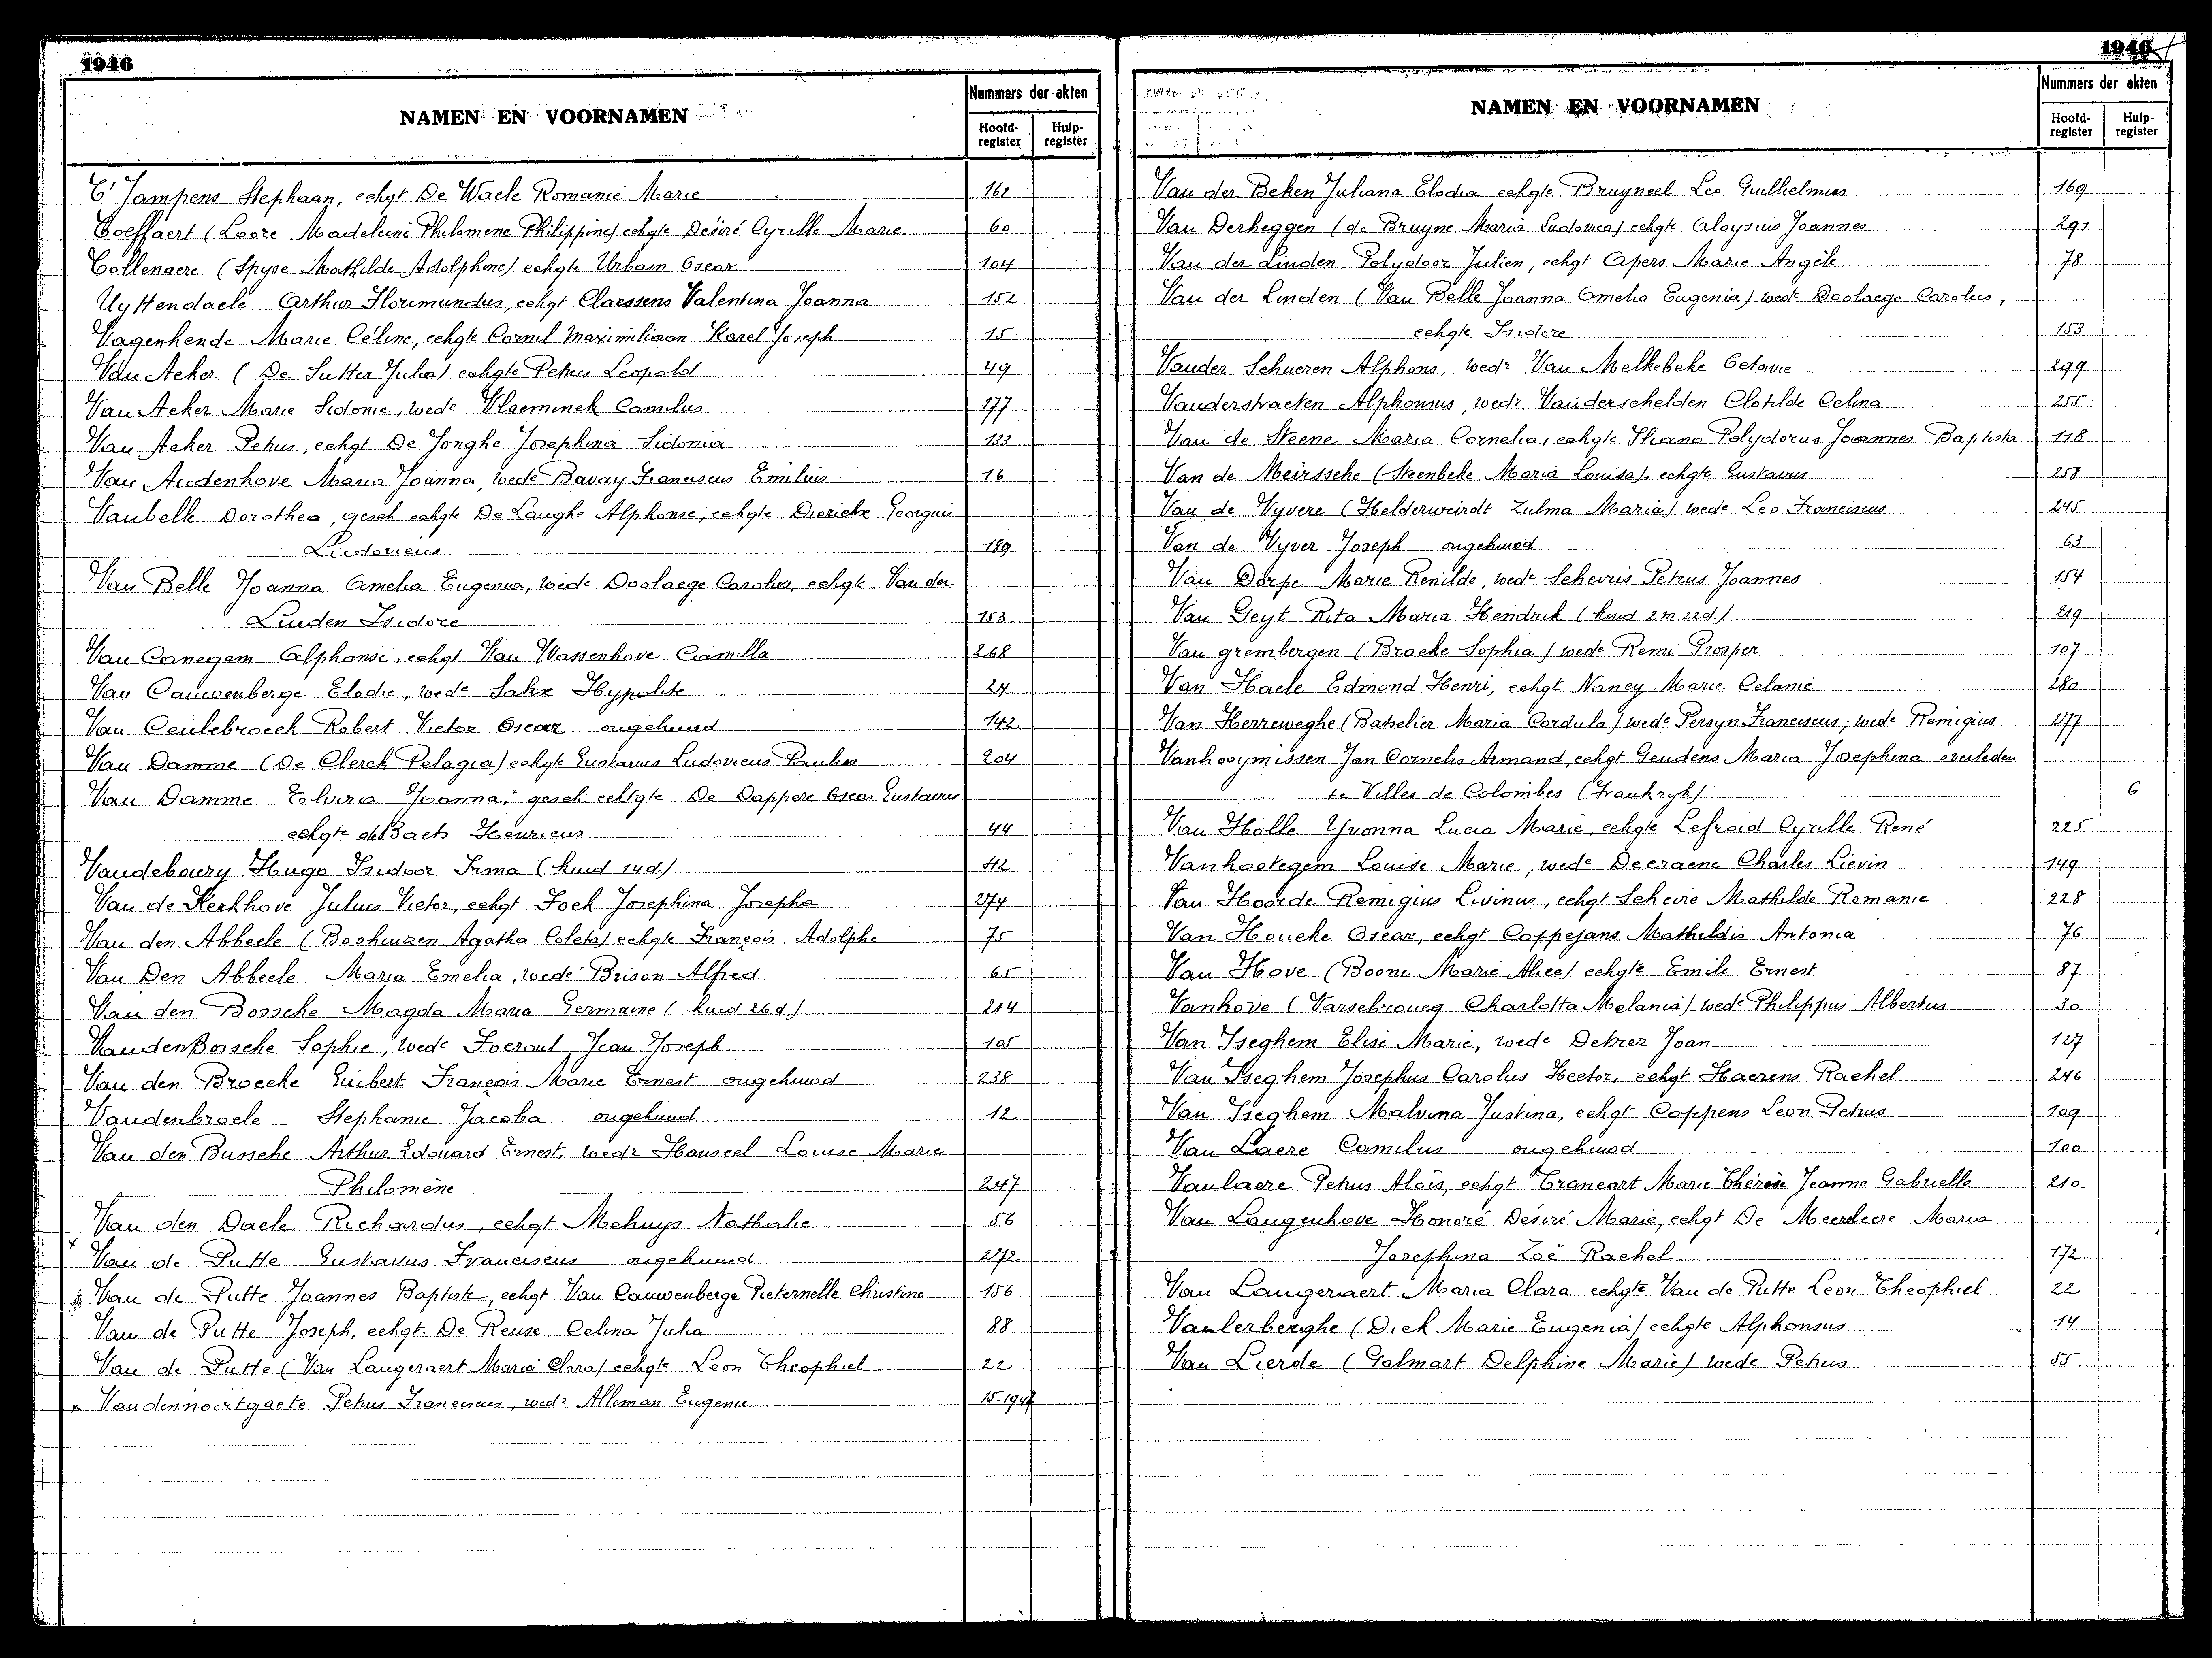 1946
NAMEN EN VOORNAMEN
Nummers der akten
Hoofd-register
Hulp-register
T'Jampens Stephaan, echgt De Waele Romanie Marie 161
Toeffaert (Loore Madeleine Philomene Philippine) echgte Désiré Cyrille Marie 60
Tollenaere (Spyse Mathilde Adolphine) echgte Urbain Oscar 104
Uyttendaele Arthur Florimundus, echgt Claessens Valentina Joanna 152
Vagenhende Marie Céline, echgte Cornil Maximiliaan Karel Joseph 15
Van Acker (De Sutter Julia) echgte Petrus Leopold 49
Van Acker Marie Sidonie, wede Vlaeminck Camilus 177
Van Acker Petrus, echgt De Jonghe Josephina Sidonia 133
Van Audenhove Maria Joanna, wede Bavay Franciscus Emilius 16
Vanbelle Dorothea, gesch echgte De Langhe Alphonse, echgte Dierickx Georgius
Ludovicus 189
Van Belle Joanna Amelia Eugenia, wede Doolaege Carolus, echgte Van der
Linden Isidore 153
Van Canegem Alphonse, echgt Van Wassenhove Camilla 268
Van Cauwenberge Elodie, wede Sahx Hypolite 24
Van Ceulebroeck Robert Victor Oscar ongehuwd 142
Van Damme (De Clerck Pelagia) echgte Gustavus Ludovicus Paulus 204
Van Damme Elvira Joanna, gesch echtgte De Dappere Oscar Gustavus
echgte de Baets Henricus 44
Vandeboury Hugo Isidoor Irma (kind 14 d.) 42
Van de Kerkhove Julius Victor, echgt Fock Josephina Josepha 274
Van den Abbeele (Boshuizen Agatha Coleta) echgte François Adolphe 75
Van Den Abbeele Maria Emelia, wede Brison Alfred 65
Van den Bossche Magda Maria Germaine (kind 26 d.) 214
Vanden Bossche Sophie, wede Foeroul Jean Joseph 105
Van den Broecke Guibert François Marie Ernest ongehuwd 238
Vandenbroele Stephanie Jacoba ongehuwd 12
Van den Bussche Arthur Edouard Ernest, wedr Hanseel Louise Marie
Philomène 247
Van den Daele Richardus, echgt Mehuys Nathalie 56
x Van de Putte Gustavus Franciscus ongehuwd 272
Van de Putte Joannes Baptist, echgt Van Cauwenberge Pieternelle Christine 156
Van de Putte Joseph, echgt. De Reuse Celina Julia 88
Van de Putte (Van Langeraert Maria Clara) echgte Leon Theophiel 22
x Vandennoortgaete Petrus Franciscus, wedr Alleman Eugenie 15-1947
1946
NAMEN EN VOORNAMEN
Nummers der akten
Hoofd-register
Hulp-register
Van der Beken Juliana Elodia echgte Bruyneel Leo Guilhelmus 169
Van Derheggen (de Bruyne Maria Ludovica) echgte Aloysius Joannes 291
Van der Linden Polydoor Julien, echgt Apers Marie Angèle 78
Van der Linden (Van Belle Joanna Amelia Eugenia) wede Doolaege Carolus,
echgte Isidore 153
Vander Schueren Alphons, wedr Van Melkebeke Octavie 299
Vanderstraeten Alphonsus, wedr Vanderschelden Clotilde Celina 255
Van de Steene Maria Cornelia, echgte Thano Polydorus Joannes Baptista 118
Van de Meirssche (Steenbeke Maria Louisa), echgte Gustavus 258
Van de Vyvere (Helderweirdt Zulma Maria) wede Leo Franciscus 245
Van de Vyver Joseph ongehuwd 63
Van Dorpe Marie Renilde, wede Scheiris Petrus Joannes 154
Van Geyt Rita Maria Hendrik (kind 2 m 22 d.) 219
Van grembergen (Bracke Sophia) wede Remi Prosper 107
Van Haele Edmond Henri, echgt Nancy Marie Celanie 280
Van Herreweghe (Batselier Maria Cordula) wede Persyn Franciscus; wede Remigius 277
Vanhooymissen Jan Cornelis Armand, echgt Geudens Maria Josephina overleden
te Villes de Colombes (Frankryk) 6
Van Holle Yvonna Lucia Marie, echgte Lefroid Cyrille René 225
Vanhootegem Louise Marie, wede Decraene Charles Lievin 149
Van Hoorde Remigius Livinus, echgt Scheire Mathilde Romanie 228
Van Houcke Oscar, echgt Coppejans Mathildis Antonia 76
Van Hove (Boone Marie Alice) echgte Emile Ernest 87
Vanhove (Varsebroucq Charlotta Melania) wede Philippus Albertus 30
Van Iseghem Elise Marie, wede Dekrez Joan 127
Van Iseghem Josephus Carolus Hector, echgt Haerens Rachel 246
Van Iseghem Malvina Justina, echgt Coppens Leon Petrus 109
Van Laere Camilus ongehuwd 100
Vanlaere Petrus Aloïs, echgt Craneart Marie Thérèse Jeanne Gabrielle 210
Van Langenhove Honoré Désiré Marie, echgt De Meerleere Maria
Josephina Zoë Rachel 172
Van Langeraert Maria Clara echgte Van de Putte Leon Theophiel 22
Vanlerberghe (Dick Marie Eugenia) echgte Alphonsus 14
Van Lierde (Galmart Delphine Marie) wede Petrus 55